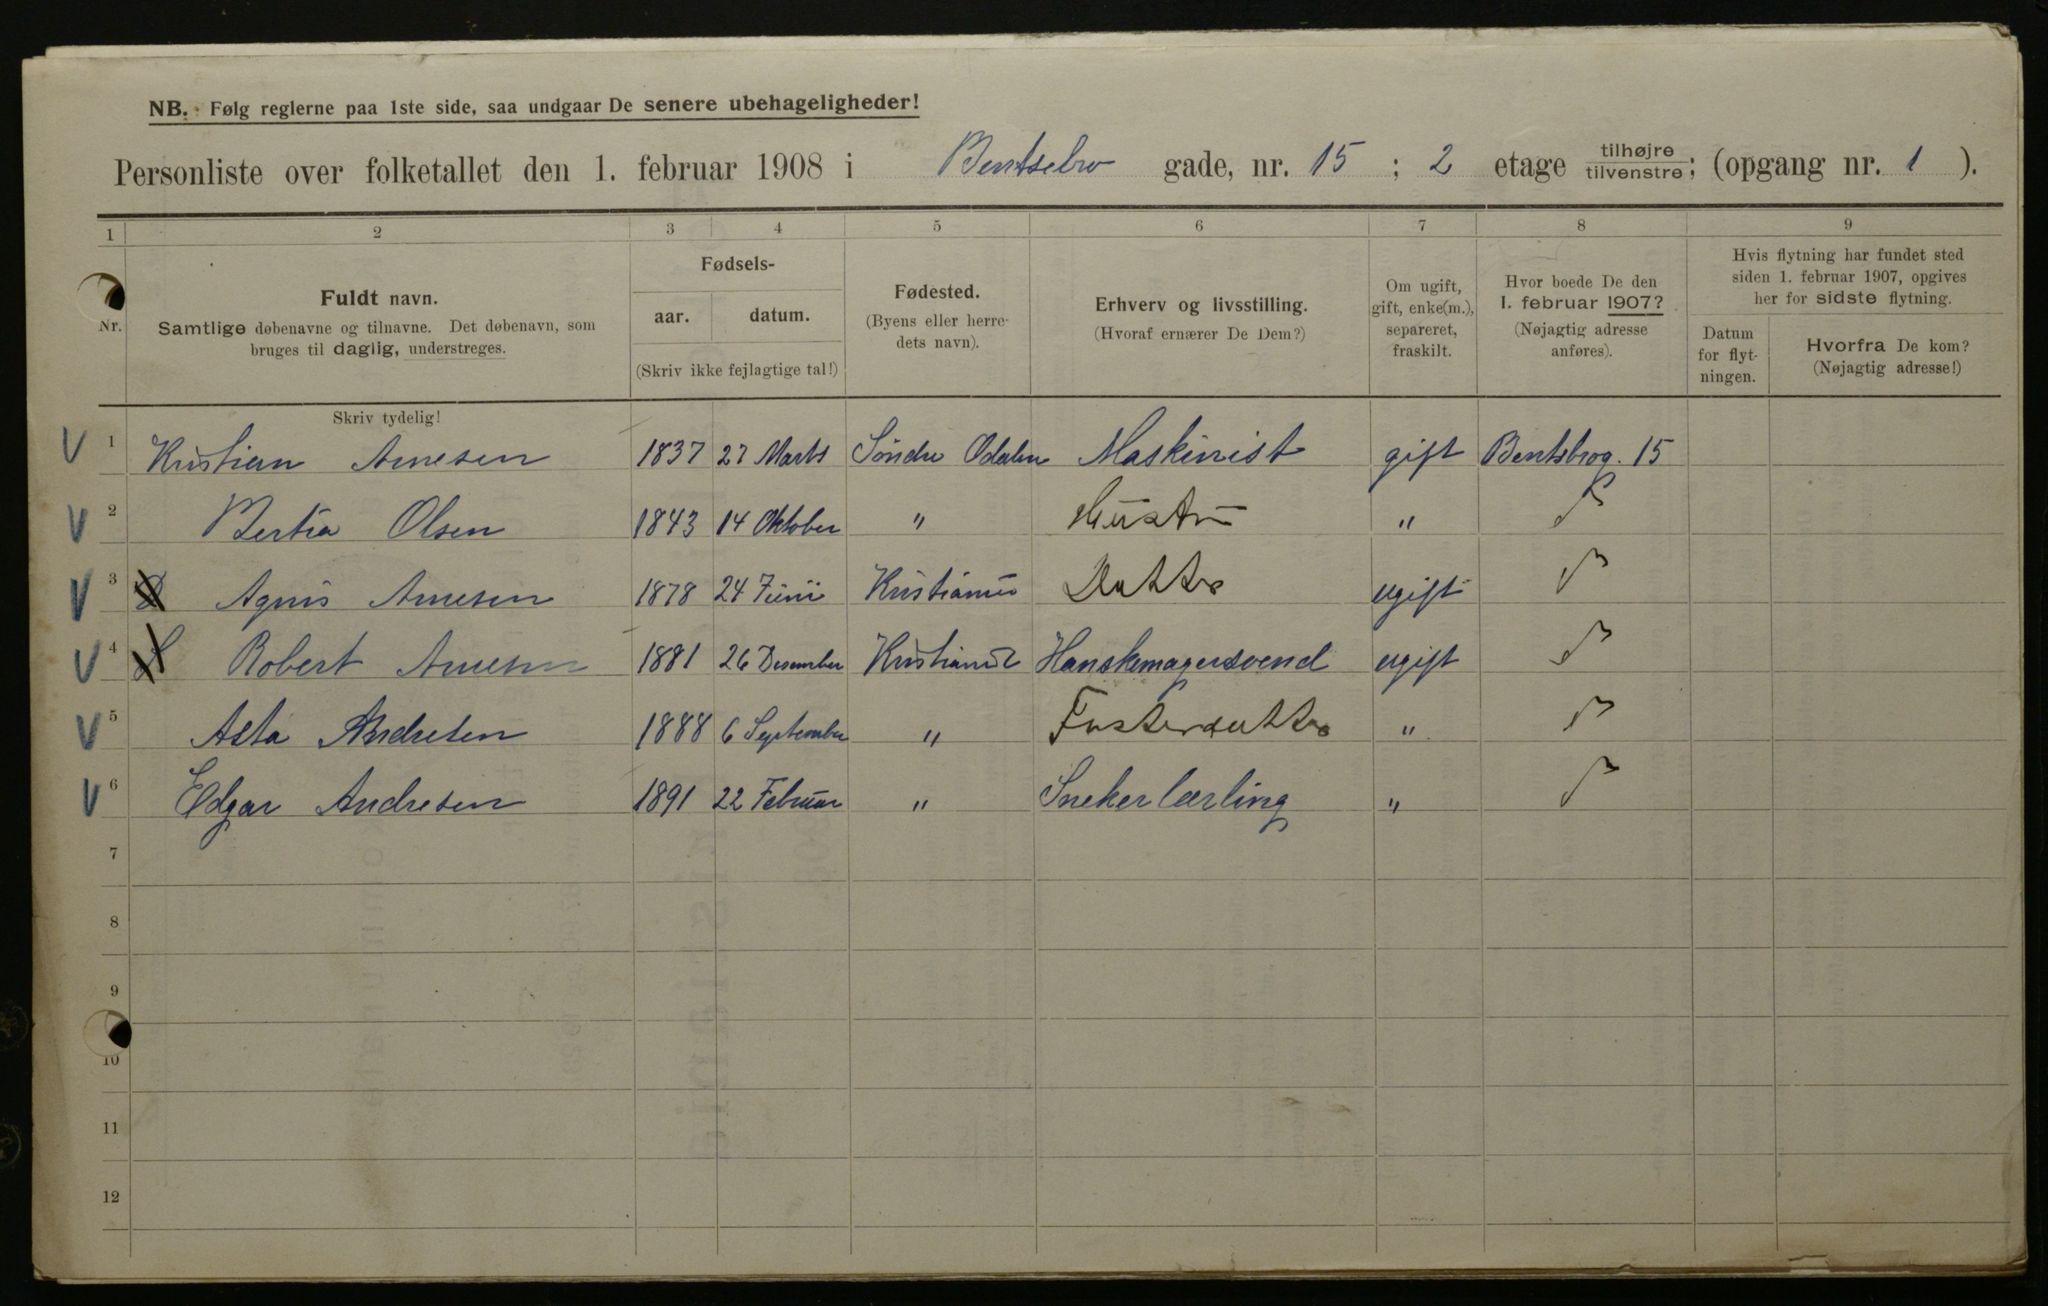 NB. Følg reglerne paa 1ste side, saa undgaar De senere ubehageligheder!
Personliste over folketallet den 1. februar 1908 i Bentsebro gade, nr. 15 ; 2 etage tilhøjre tilvenstre ; (opgang nr. 1 ).
1 2 3 4 5 6 7 8 9
Nr.
Fuldt navn.
Samtlige døbenavne og tilnavne. Det døbenavn, som
bruges til daglig, understreges.
Skriv tydelig!
Fødsels-
aar. datum.
(Skriv ikke fejlagtige tal!)
Fødested.
(Byens eller herre-
dets navn).
Erhverv og livsstilling.
(Hvoraf ernærer De Dem?)
Om ugift,
gift, enke(m.),
separeret,
fraskilt.
Hvor boede De den
1. februar 1907?
(Nøjagtig adresse
anføres).
Hvis flytning har fundet sted
siden 1. februar 1907, opgives
her for sidste flytning.
Datum
for flyt-
ningen.
Hvorfra De kom?
(Nøjagtig adresse!)
V 1 Kristian Arnesen 1837 27 Marts Søndre Odalen Maskinist gift Bentsbrog. 15
V 2 Bertia Olsen 1843 14 Oktober " Hustru "
V 3 D Agnis Arnesen 1878 24 Juni Kristiania Datter ugift
V 4 S Robert Arnesen 1881 26 Desember Kristiania Hanskemagersvend ugift
V 5 Asta Andresen 1888 6 September " Fosterdatter "
V 6 Edgar Andresen 1891 22 Februar " Snekerlærling "
7
8
9
10
11
12